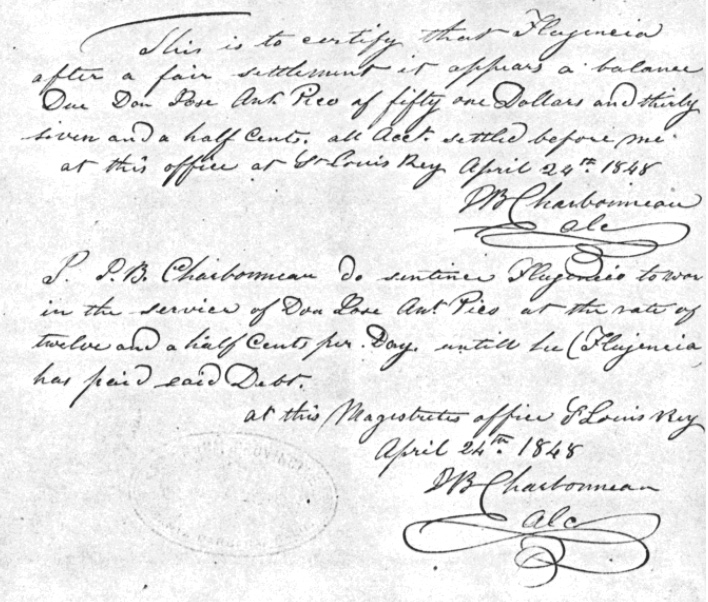 This is to certify that Flugencia
after a fair settlement it appears a balance
Due Don Jose Ant. Pico of fifty one Dollars and thirty
seven and a half Cents. all Acct. settled before me
at this office at St Louis Rey April 24th. 1848
JB Charbonneau
alc
I. J.B. Charbonneau do sentince Flugencio to wor
in the service of Don Jose Ant. Pico at the rate of
twelve and a half Cents per Day. untill he (Flugencia
has paid said Debt.
at this Magestretes office St Louis Rey
April 24th. 1848
JB Charbonneau
alc